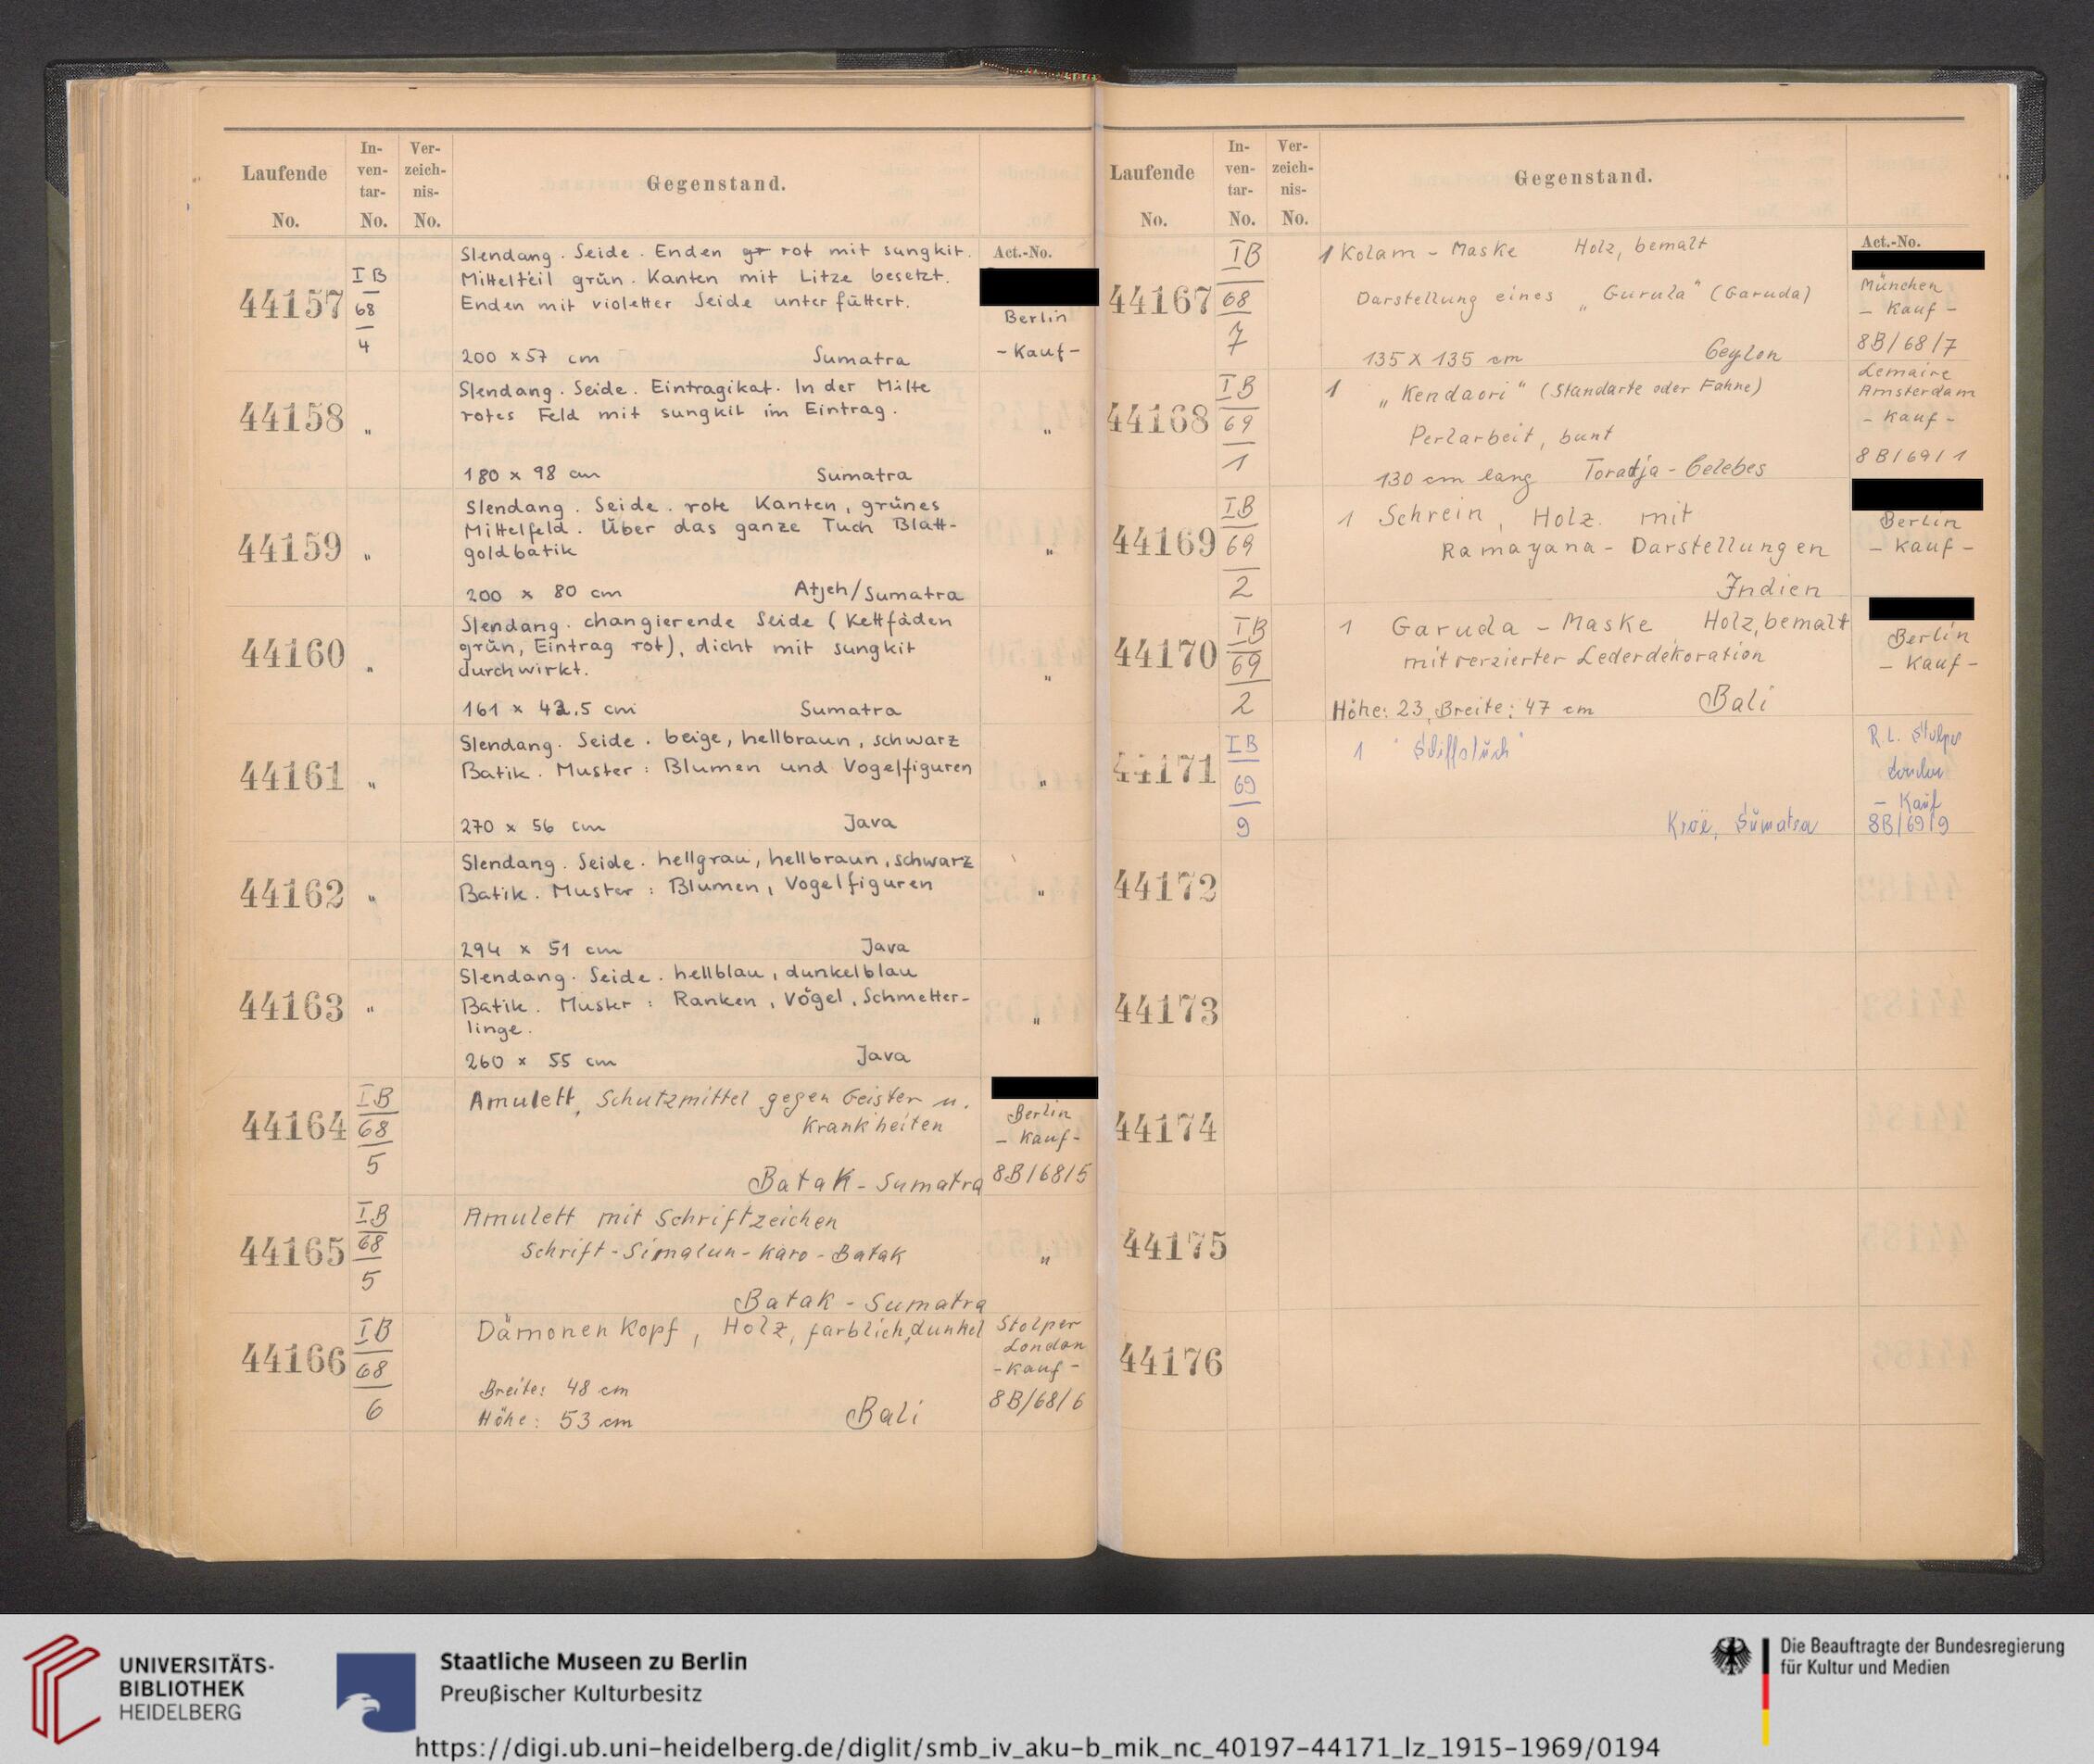 Laufende No.
In-ven-tar-No.
Ver-zeich-nis-No.
Gegenstand.
Act.-No.
44157
IB
68
4
Slendang. Seide. Enden gr rot mit sungkit.
Mittelteil grün. Kanten mit Litze besetzt.
Enden mit violetter Seide unterfüttert.
200 x 57 cm Sumatra
Berlin
- Kauf -
44158 "
Slendang. Seide. Eintragikat. In der Mitte
rotes Feld mit sungkit im Eintrag.
180 x 98 cm Sumatra
"
44159 "
Slendang. Seide. rote Kanten, grünes
Mittelfeld. Über das ganze Tuch Blatt-
goldbatik
200 x 80 cm Atjeh/Sumatra
"
44160 "
Slendang. changierende Seide (Kettfäden
grün, Eintrag rot), dicht mit sungkit
durchwirkt.
161 x 42.5 cm Sumatra
"
44161 "
Slendang. Seide. beige, hellbraun, schwarz
Batik. Muster: Blumen und Vogelfiguren
270 x 56 cm Java
"
44162 "
Slendang. Seide. hellgrau, hellbraun, schwarz
Batik. Muster: Blumen, Vogelfiguren
294 x 51 cm Java
"
44163 "
Slendang. Seide. hellblau, dunkelblau
Batik. Muster: Ranken, Vögel, Schmetter-
linge.
260 x 55 cm Java
"
44164
IB
68
5
Amulett, Schutzmittel gegen Geister u.
Krankheiten
Batak - Sumatra
Berlin
- Kauf -
8B/68/5
44165
IB
68
5
Amulett mit Schriftzeichen
Schrift-Simalun-Karo-Batak
Batak - Sumatra
"
44166
IB
68
6
Dämonenkopf, Holz, farblich, dunkel
Breite: 48 cm
Höhe: 53 cm Bali
Stolper
London
- Kauf -
8B/68/6
Laufende No.
In-ven-tar-No.
Ver-zeich-nis-No.
Gegenstand.
Act.-No.
44167
IB
68
7
1 Kolam - Maske Holz, bemalt
Darstellung eines „Gurula" (Garuda)
135 x 135 cm Ceylon
München
- Kauf -
8B/68/7
44168
IB
69
1
1 „Kendaori" (Standarte oder Fahne)
Perlarbeit, bunt
130 cm lang Toradja - Celebes
Lemaire
Amsterdam
- Kauf -
8B/69/1
44169
IB
69
2
1 Schrein, Holz. mit
Ramayana - Darstellungen
Indien
Berlin
- Kauf -
44170
IB
69
2
1 Garuda - Maske Holz, bemalt
mit verzierter Lederdekoration
Höhe: 23, Breite: 47 cm Bali
Berlin
- Kauf -
44171
IB
69
9
1 "Schiffstuch"
Kroë, Sumatra
R.L. Stolper
London
- Kauf
8B/69/9
44172
44173
44174
44175
44176
UNIVERSITÄTS-
BIBLIOTHEK
HEIDELBERG
Staatliche Museen zu Berlin
Preußischer Kulturbesitz
Die Beauftragte der Bundesregierung
für Kultur und Medien
https://digi.ub.uni-heidelberg.de/diglit/smb_iv_aku-b_mik_nc_40197-44171_lz_1915-1969/0194